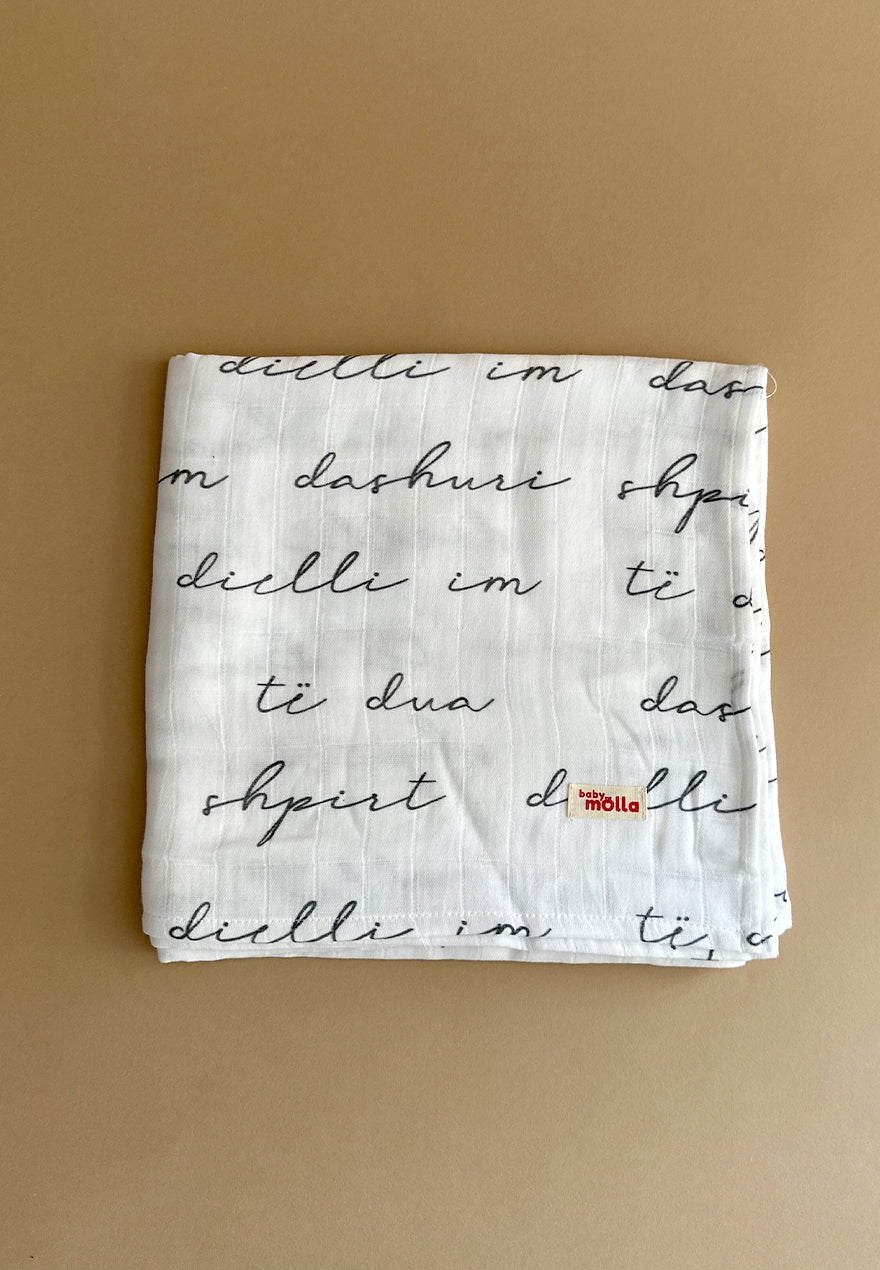 dielli im das
im dashuri shpi
dielli im të d
të dua das
shpirt dielli
baby
mölla
dielli im të d